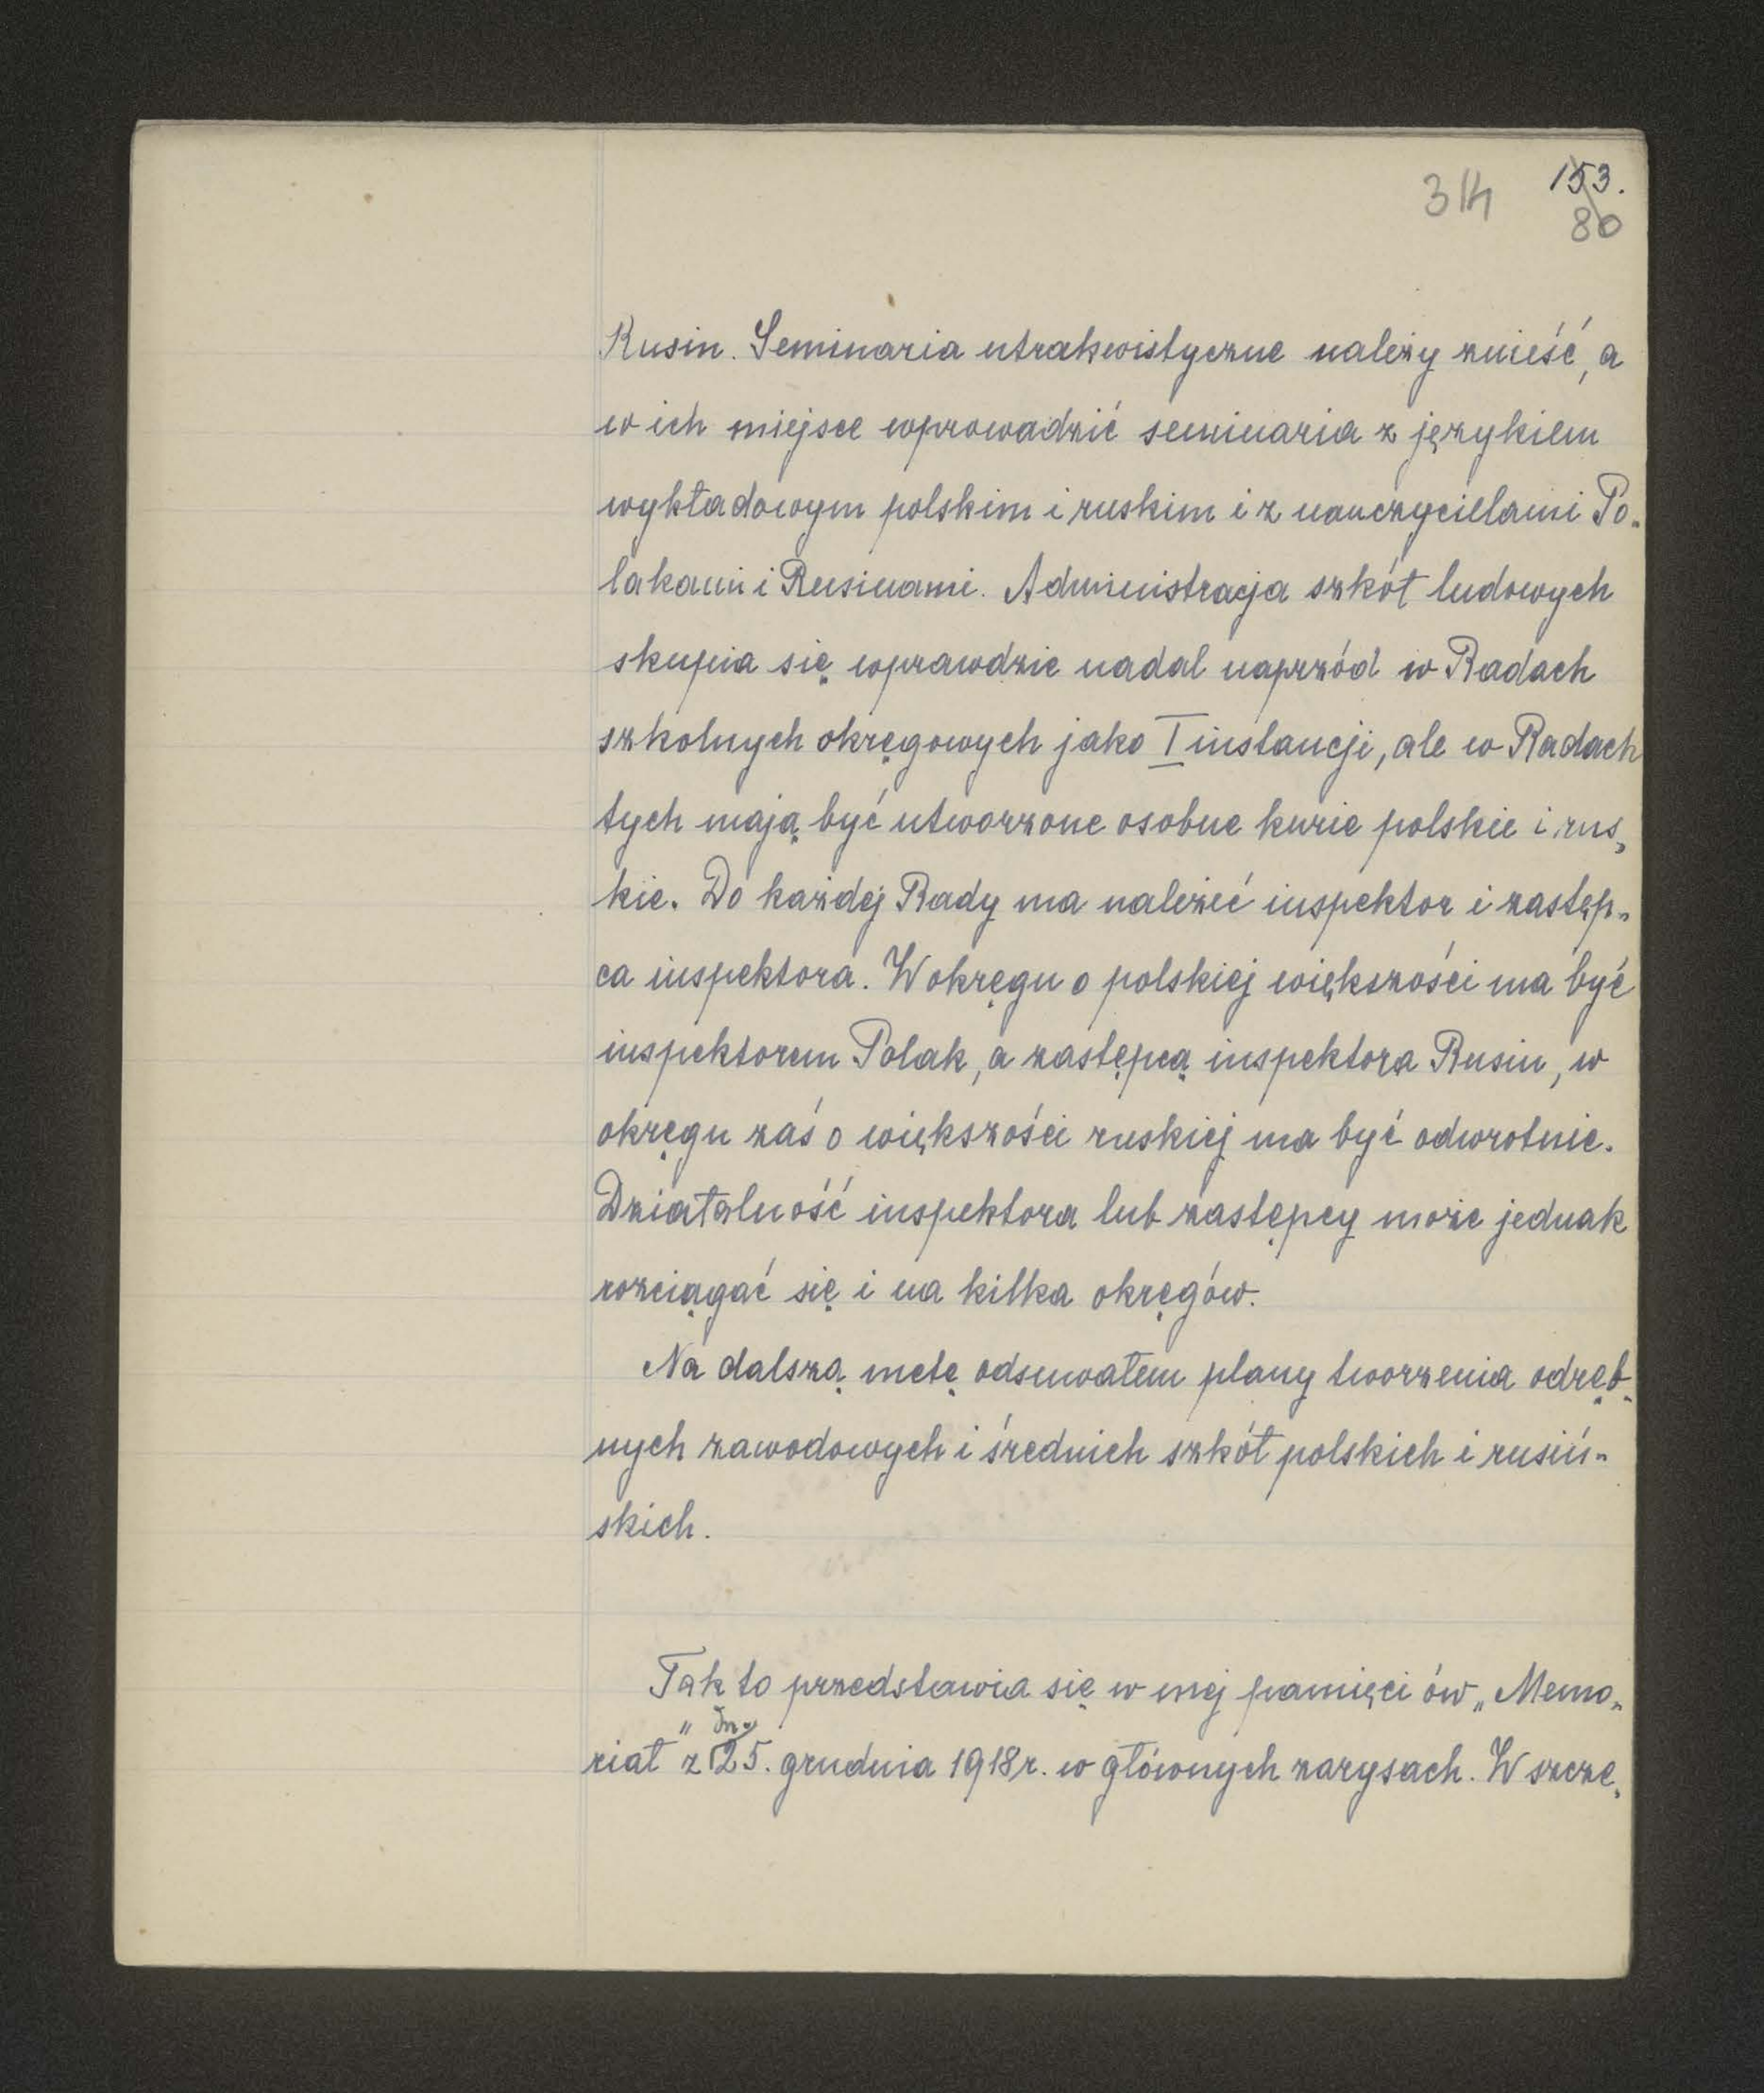 314 153.
80
Rusin. Seminaria utrakwistyczne należy znieść, a
w ich miejsce wprowadzić seminaria z językiem
wykładowym polskim i ruskim i z nauczycielami Po-
lakami i Rusinami. Administracja szkół ludowych
skupia się wprawdzie nadal naprzód w Radach
szkolnych okręgowych jako I instancji, ale w Radach
tych mają być utworzone osobne kurie polskie i rus-
kie. Do każdej Rady ma należeć inspektor i zastęp-
ca inspektora. W okręgu o polskiej większości ma być
inspektorem Polak, a zastępcą inspektora Rusin, w
okręgu zaś o większości ruskiej ma być odwrotnie.
Działalność inspektora lub zastępcy może jednak
rozciągać się i na kilka okręgów.
Na dalszą metę odsuwałem plany tworzenia odręb-
nych zawodowych i średnich szkół polskich i rusiń-
skich.
Tak to przedstawia się w mej pamięci ów „Memo-
riał" z dn. 25. grudnia 1918 r. w głównych zarysach. W szcze-